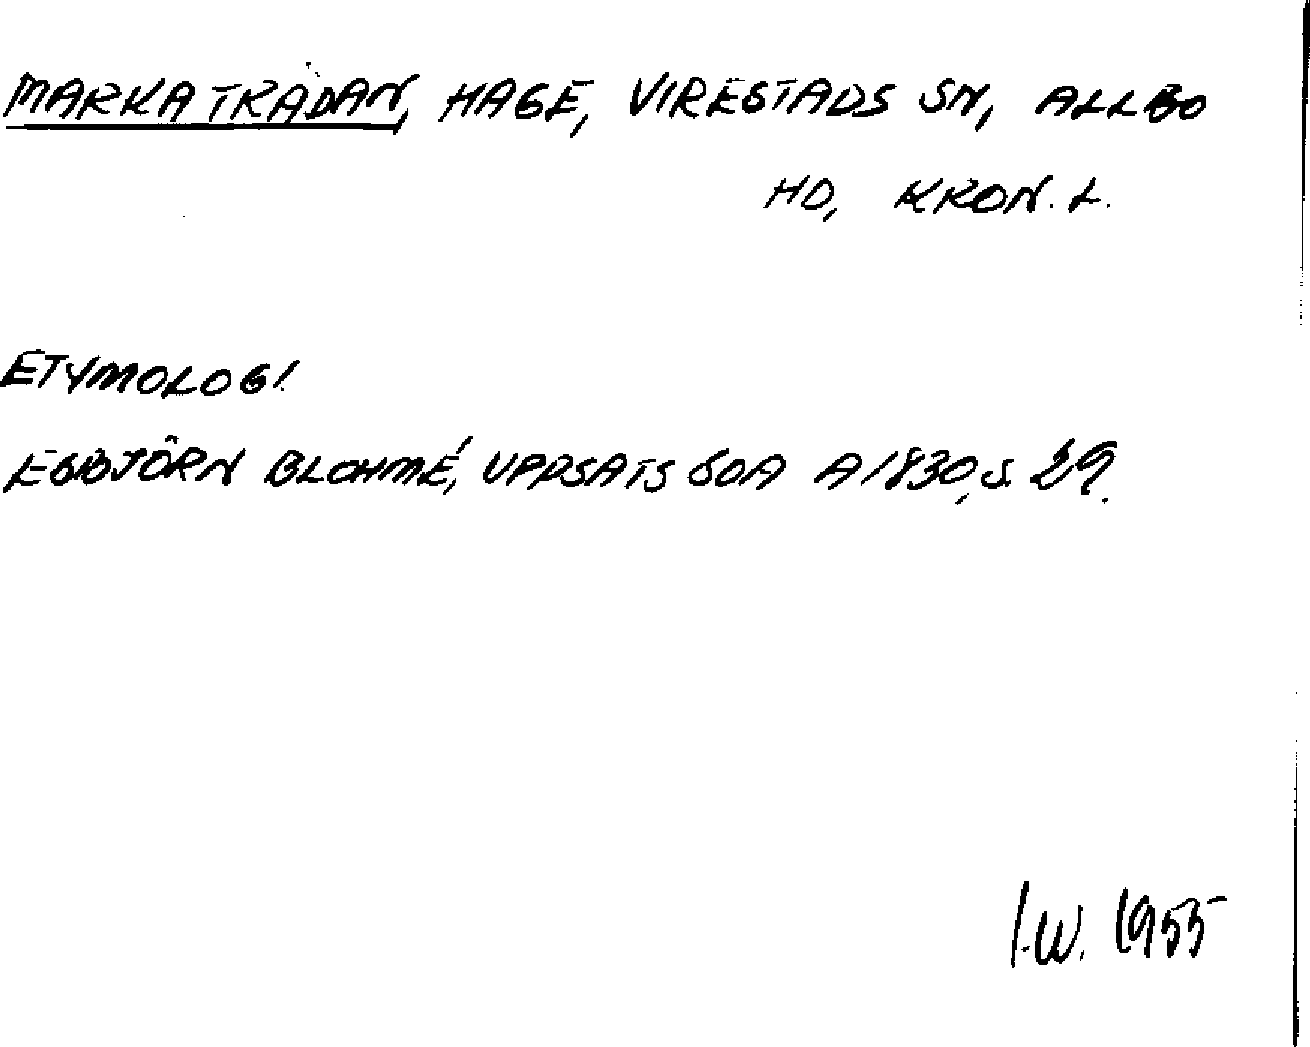 MARKATRÄDAN, HAGE, VIRESTADS SN, ALLBO
HD, KRON. L.
ETYMOLOGI.
EGBJÖRN BLOHMÉ, UPPSATS SOA A1830, S. 29.
I.W. 1955